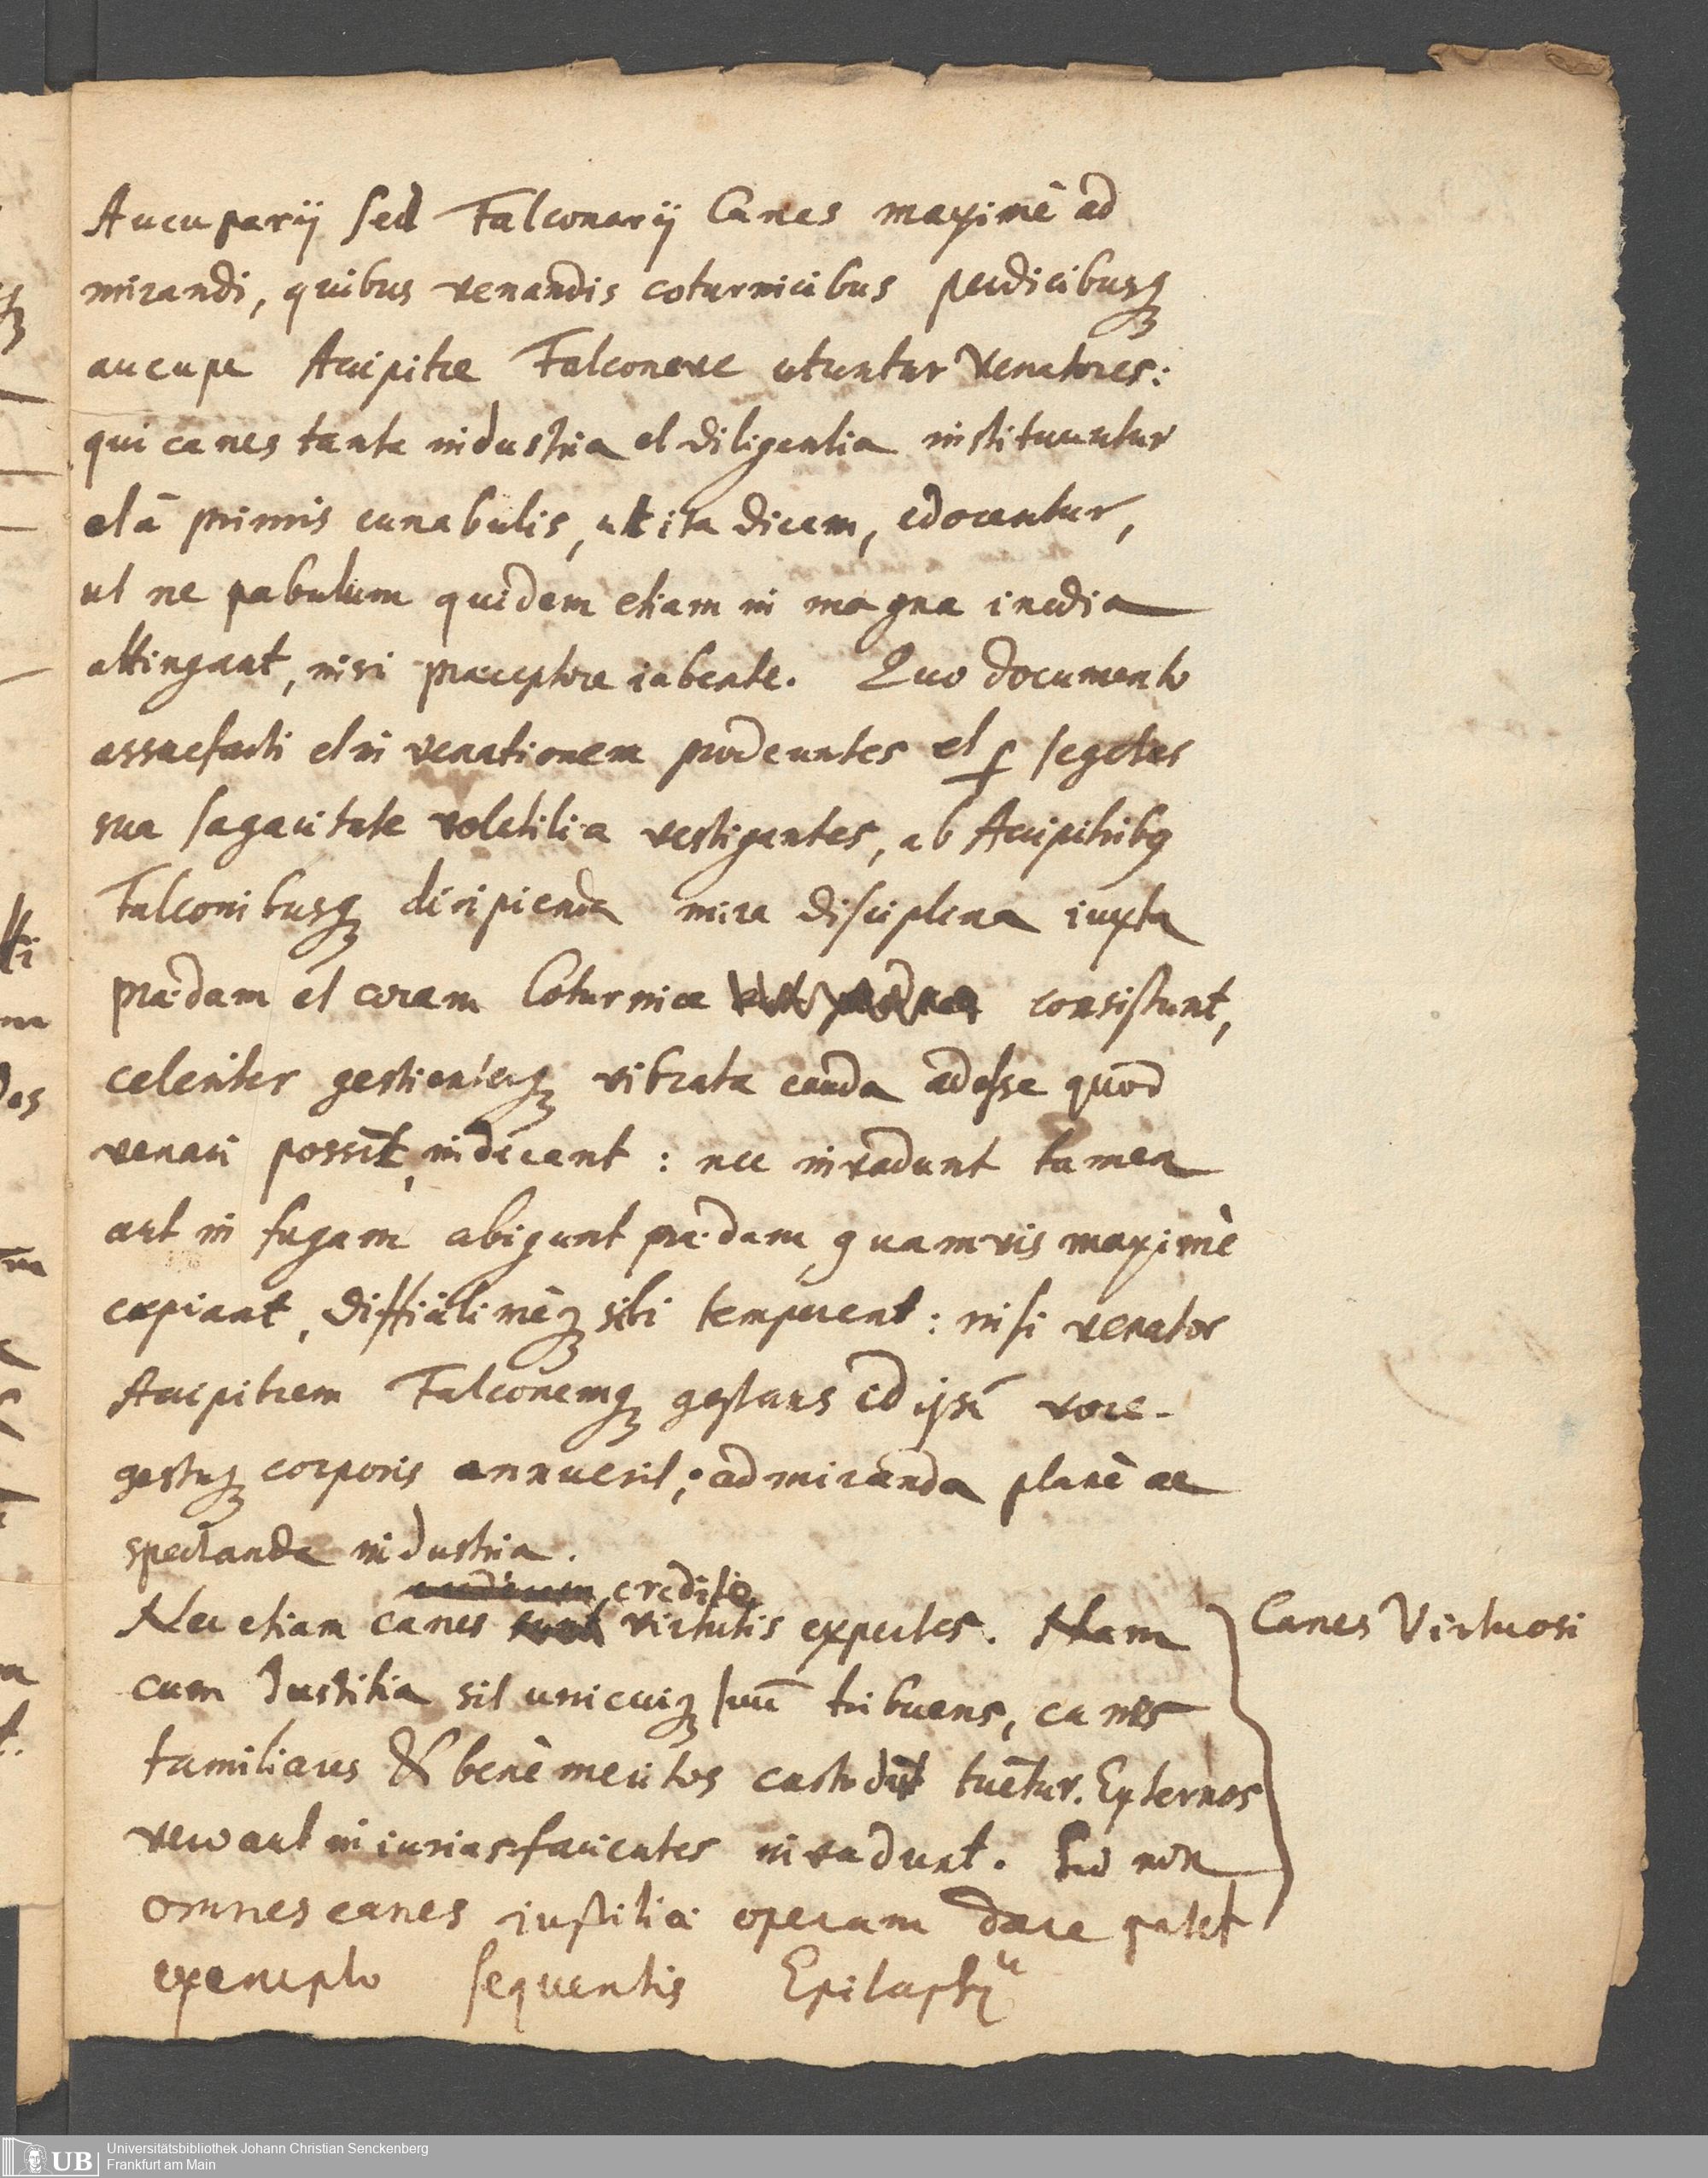 Aucuparij sed Falconarij Canes maximè ad
mirandi, quibus venandis coturnicibus perdicibusq́
aucupe Accipitre Falconeve utuntur Venatores:
qui canes tanta industria et diligentia instituuntur
et ā primis cunabulis, ut ita dicam, edocentur,
ut ne pabulum quidem etiam in magna inedia
attingant, nisi præceptore iubente. Quo documento
assuefacti et in venationem prodeuntes et ꝑ segetes
sua sagacitate volatilia vestigantes, ab Accipitribꝫ
Falconibusqꝫ diripienda mira disciplina iuxta
prædam et coram Coturnice consistunt,
celeriter gestienterqꝫ vibrata cauda adesse quod
venari possīt, indicant : nec invadunt tamen
aut in fugam abigunt prædam, quamvis maximè
cupiant, difficilimèqꝫ sibi temperent : nisi venator
Accipitrem Falconemqꝫ gestans id ipsū voce-
gestuqꝫ corporis annuerit; admiranda planè ac
spectanda industria.
credite
Nec etiam canes virtutis expertes. Nam
cum Justitia sit unicuiqꝫ suū tribuens, canes
familiares & benè meritos custodiūt tuētur. Externos
vero aut iniurias facientes invadunt. Sed non
omnes canes iustitiæ operam dare patet
exemplo sequentis Epitaphii
Canes Virtuosi
Universitätsbibliothek Johann Christian Senckenberg
Frankfurt am Main
UB